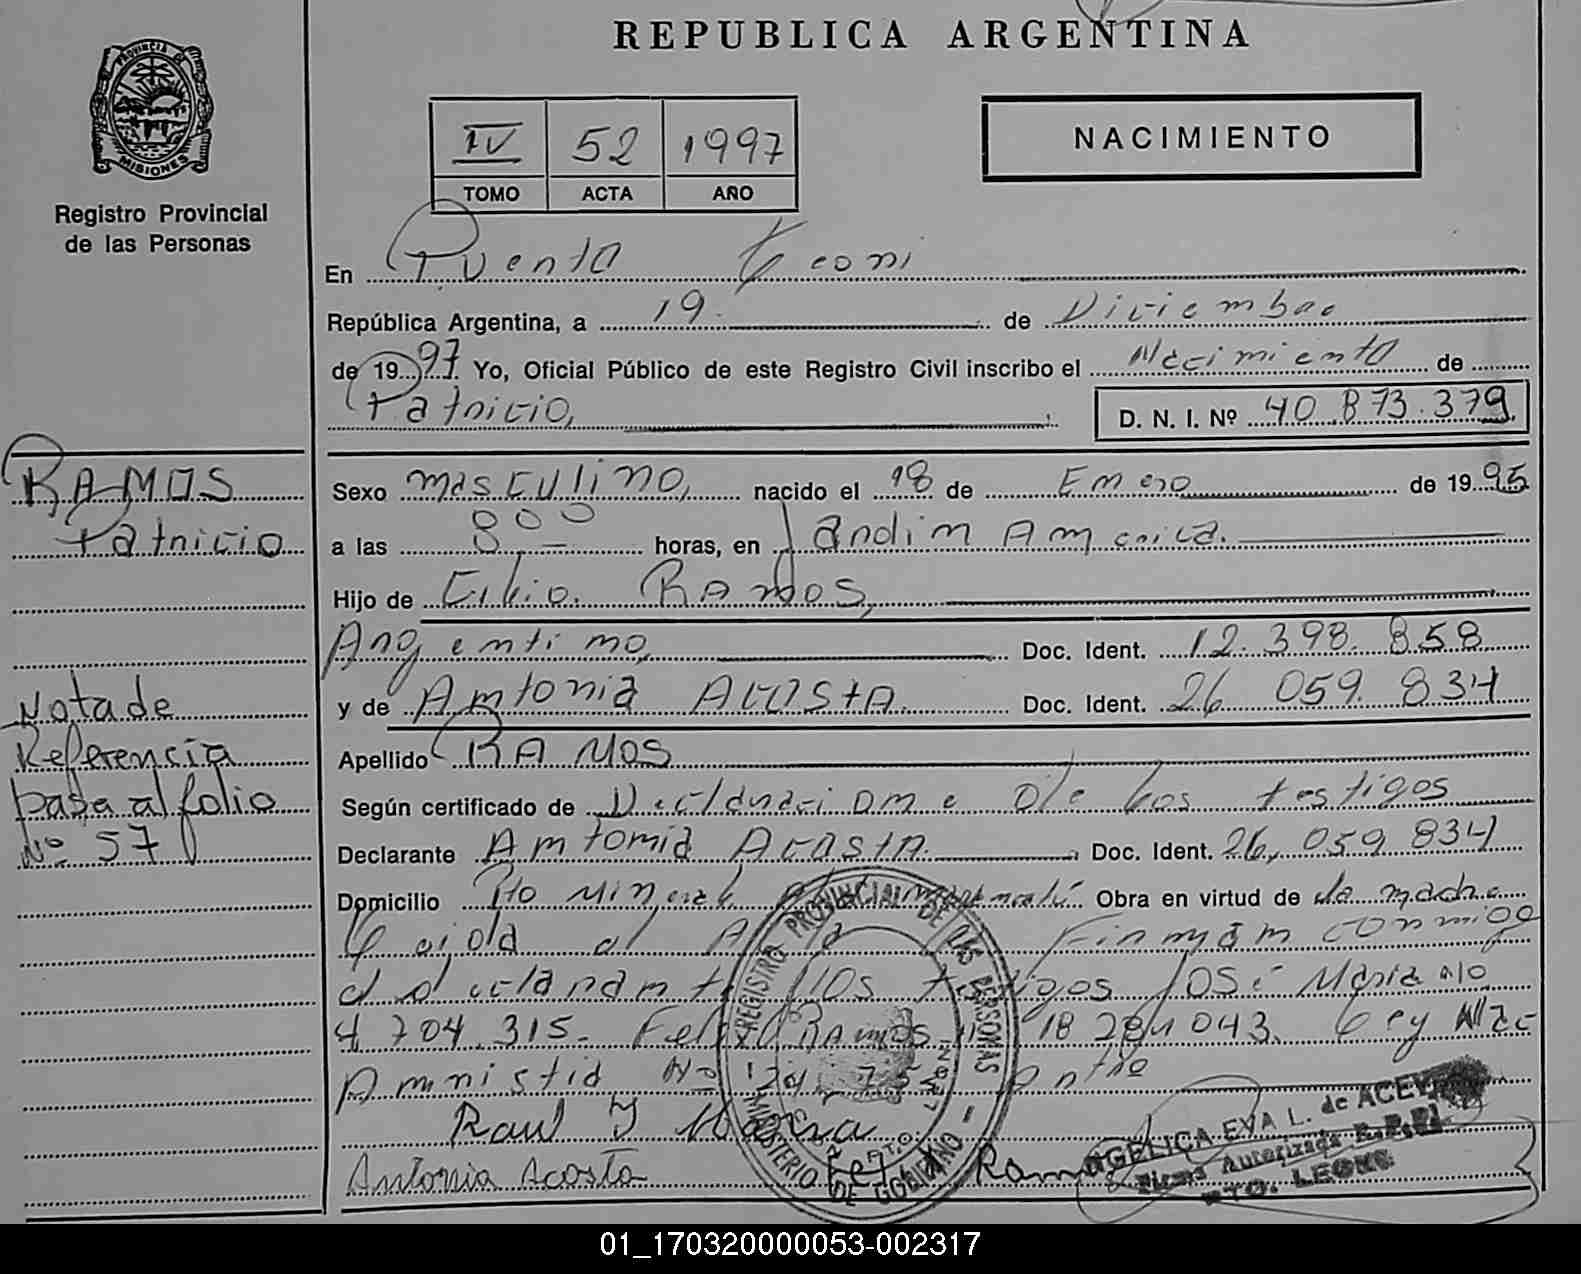 REPUBLICA ARGENTINA
PROVINCIA
MISIONES
Registro Provincial
de las Personas
IV 52 1997
TOMO ACTA AÑO
NACIMIENTO
En Puerto Leoni
República Argentina, a 19 de Diciembre
de 1997. Yo, Oficial Público de este Registro Civil inscribo el Nacimiento de
Patricio, D. N. I. Nº 40.873.379
RAMOS
Patricio
Sexo masculino, nacido el 18 de Enero de 1995
a las 8,00 horas, en Jardin America.
Hijo de RAMOS,
Argentino, Doc. Ident. 12.398.858
y de Antonia ACOSTA. Doc. Ident. 26 059.834
Apellido RAMOS
Nota de
Referencia
pasa al folio
Nº 57
Según certificado de Declaracion de los testigos
Declarante Antonia Acosta. Doc. Ident. 26,059 834
Domicilio Pto Mineral Obra en virtud de la madre
Leida al Acta Firman conmigo
declarante los testigos José Maria
4 704.315- Ramos 18 284 043. Ley Nac
Amnistia Nº
Antonia Acosta
REGISTRO PROVINCIAL DE LAS PERSONAS
MINISTERIO DE GOBIERNO
PTO. LEONI
ANGELICA EVA L. de ACEV
Firma Autorizada R.P.P.
PTO. LEONI
01_170320000053-002317